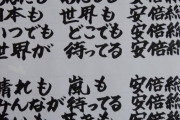 日本も 世界も 安倍
いつでも どこでも 安倍
世界が 待ってる 安倍
晴れも 嵐も 安倍
みんなが 待ってる 安倍